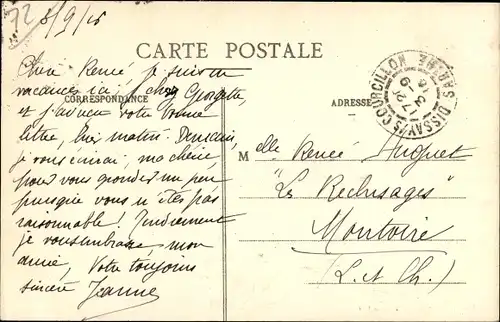 72
8/9/15
CARTE POSTALE
CORRESPONDANCE
ADRESSE
DISSAY-S-COURCILLON SARTHE
Chère Renée, je suis en
vacances ici, chez Georgette
et j'ai reçu votre bonne
lettre, hier matin. Demain,
je vous écrirai, ma chérie,
pour vous gronder un peu
puisque vous n'êtes pas
raisonnable! Tendrement
je vous embrasse mon
amie, Votre toujours
sincère Jeanne
Melle Renée Huguet
"Les Rechisages"
Montoire
(L. et Ch.)